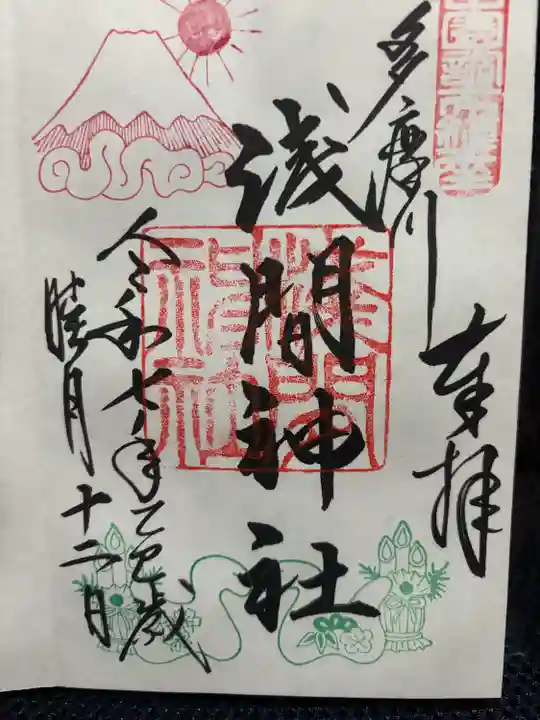 多摩川
奉拝
浅間神社
浅間神社
令和七年乙巳歳
睦月十二日